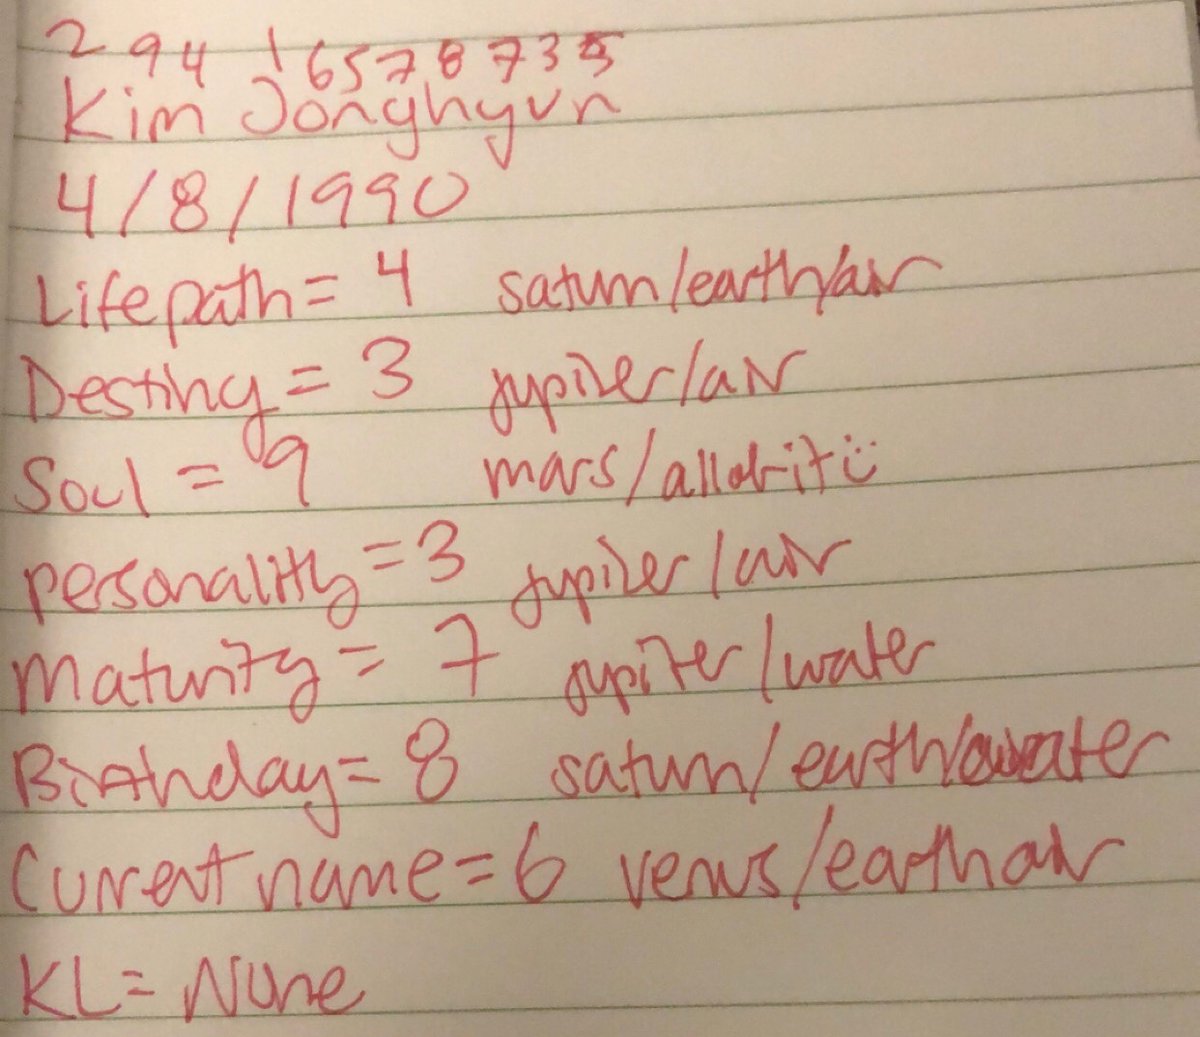 2 9 4 1 6 5 7 8 7 3 5
Kim Jonghyun
4/8/1990
Lifepath = 4 saturn/earth/air
Destiny = 3 jupiter/air
Soul = 9 mars/allofit ü
personality = 3 jupiter/air
maturity = 7 jupiter/water
Birthday = 8 saturn/earth/water
Current name = 6 venus/earth air
KL = None